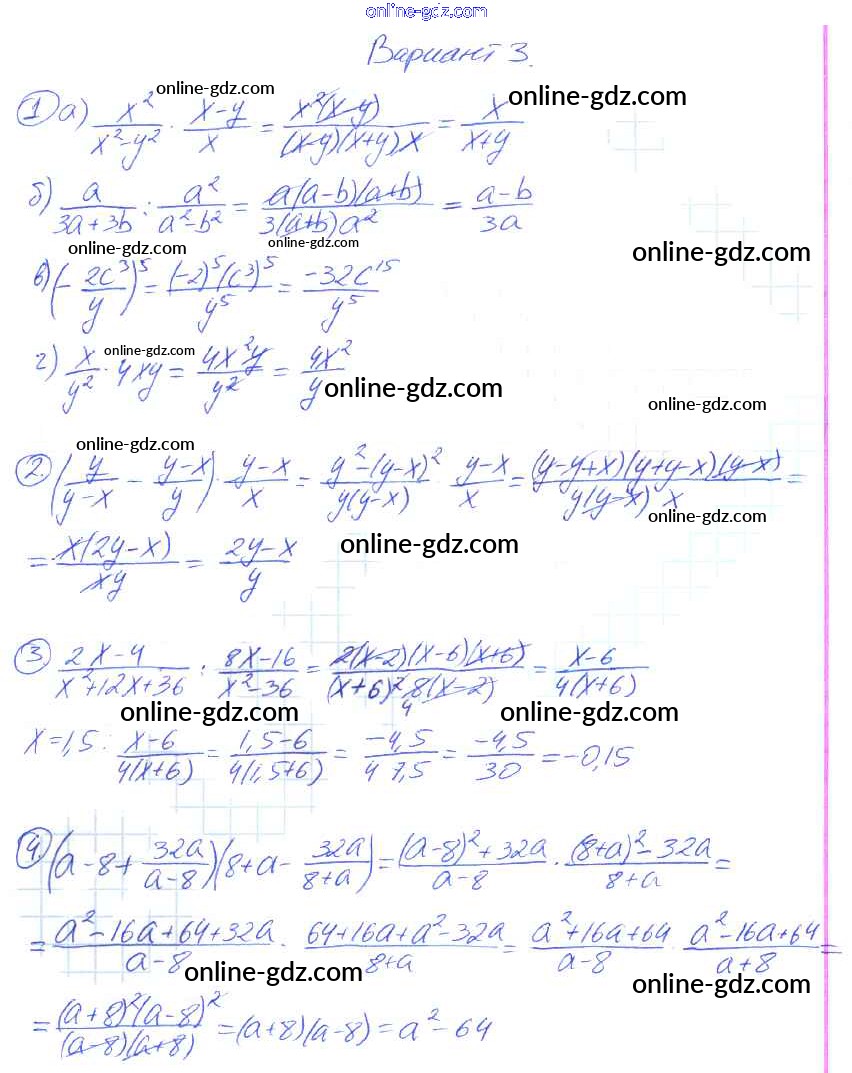 online-gdz.com
Вариант 3.
online-gdz.com
online-gdz.com
1 а) x²/(x²-y²) · (x-y)/x = x²(x-y)/((x-y)(x+y)x) = x/(x+y)
б) a/(3a+3b) : a²/(a²-b²) = a(a-b)(a+b)/(3(a+b)a²) = (a-b)/(3a)
online-gdz.com
online-gdz.com
online-gdz.com
в) (-2c³/y)⁵ = (-2)⁵(c³)⁵/y⁵ = -32c¹⁵/y⁵
online-gdz.com
г) x/y² · 4xy = 4x²y/y² = 4x²/y
online-gdz.com
online-gdz.com
online-gdz.com
2. (y/(y-x) - (y-x)/y) · (y-x)/x = (y²-(y-x)²)/(y(y-x)) · (y-x)/x = (y-y+x)(y+y-x)(y-x)/(y(y-x) x) =
online-gdz.com
= x(2y-x)/(xy) = (2y-x)/y
online-gdz.com
3 (2x-4)/(x²+12x+36) : (8x-16)/(x²-36) = 2(x-2)(x-6)(x+6)/((x+6)² 8(x-2)) = (x-6)/(4(x+6))
4
online-gdz.com
online-gdz.com
x=1,5: (x-6)/(4(x+6)) = (1,5-6)/(4(1,5+6)) = -4,5/(4·7,5) = -4,5/30 = -0,15
4. (a-8+32a/(a-8))(8+a-32a/(8+a)) = ((a-8)²+32a)/(a-8) · ((8+a)²-32a)/(8+a) =
= (a²-16a+64+32a)/(a-8) · (64+16a+a²-32a)/(8+a) = (a²+16a+64)/(a-8) · (a²-16a+64)/(a+8) =
online-gdz.com
online-gdz.com
= (a+8)²(a-8)²/((a-8)(a+8)) = (a+8)(a-8) = a²-64